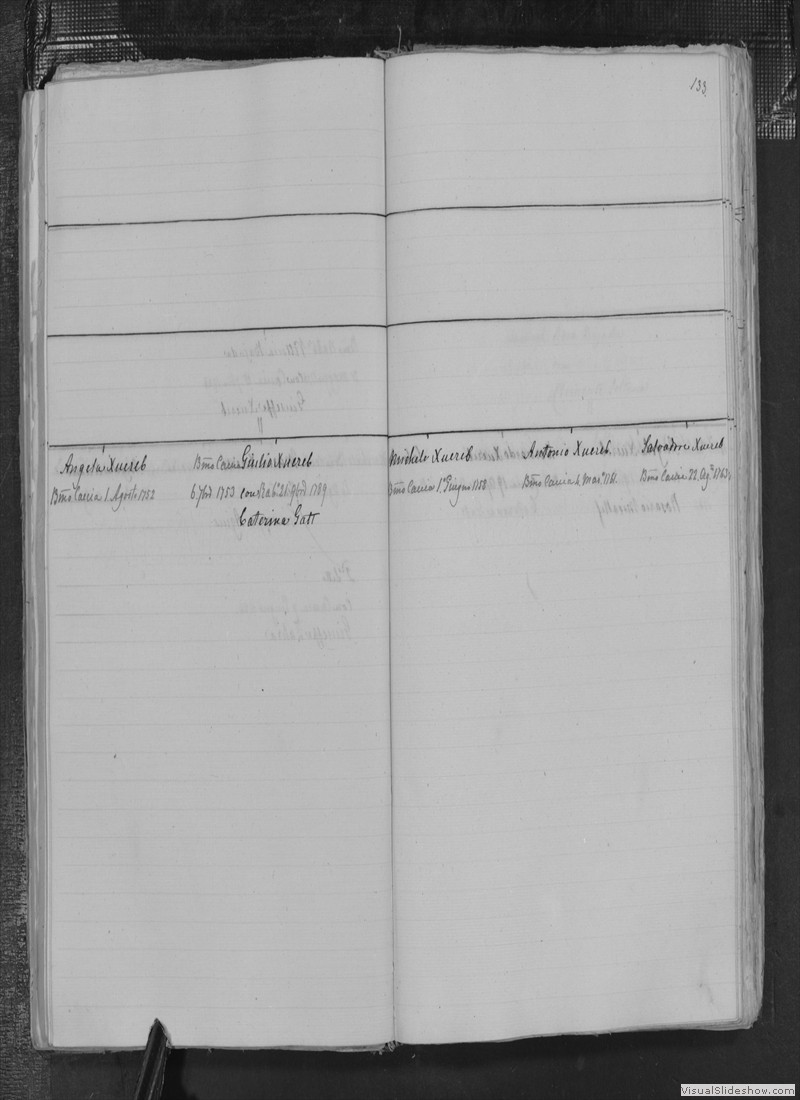 133.
Angela Xuereb
Bmo Caccia 1. Agosto 1752
Bmo Caccia Giulio Xuereb
6. 7bre 1753 con Rab. 26. 9bre 1789
Caterina Gatt
Michele Xuereb
Bmo Caccia 1. Giugno 1758
Antonio Xuereb
Bmo Caccia 4. Mar. 1761
Salvadore Xuereb
Bmo Caccia 22. Ag. 1763
VisualSlideshow.com